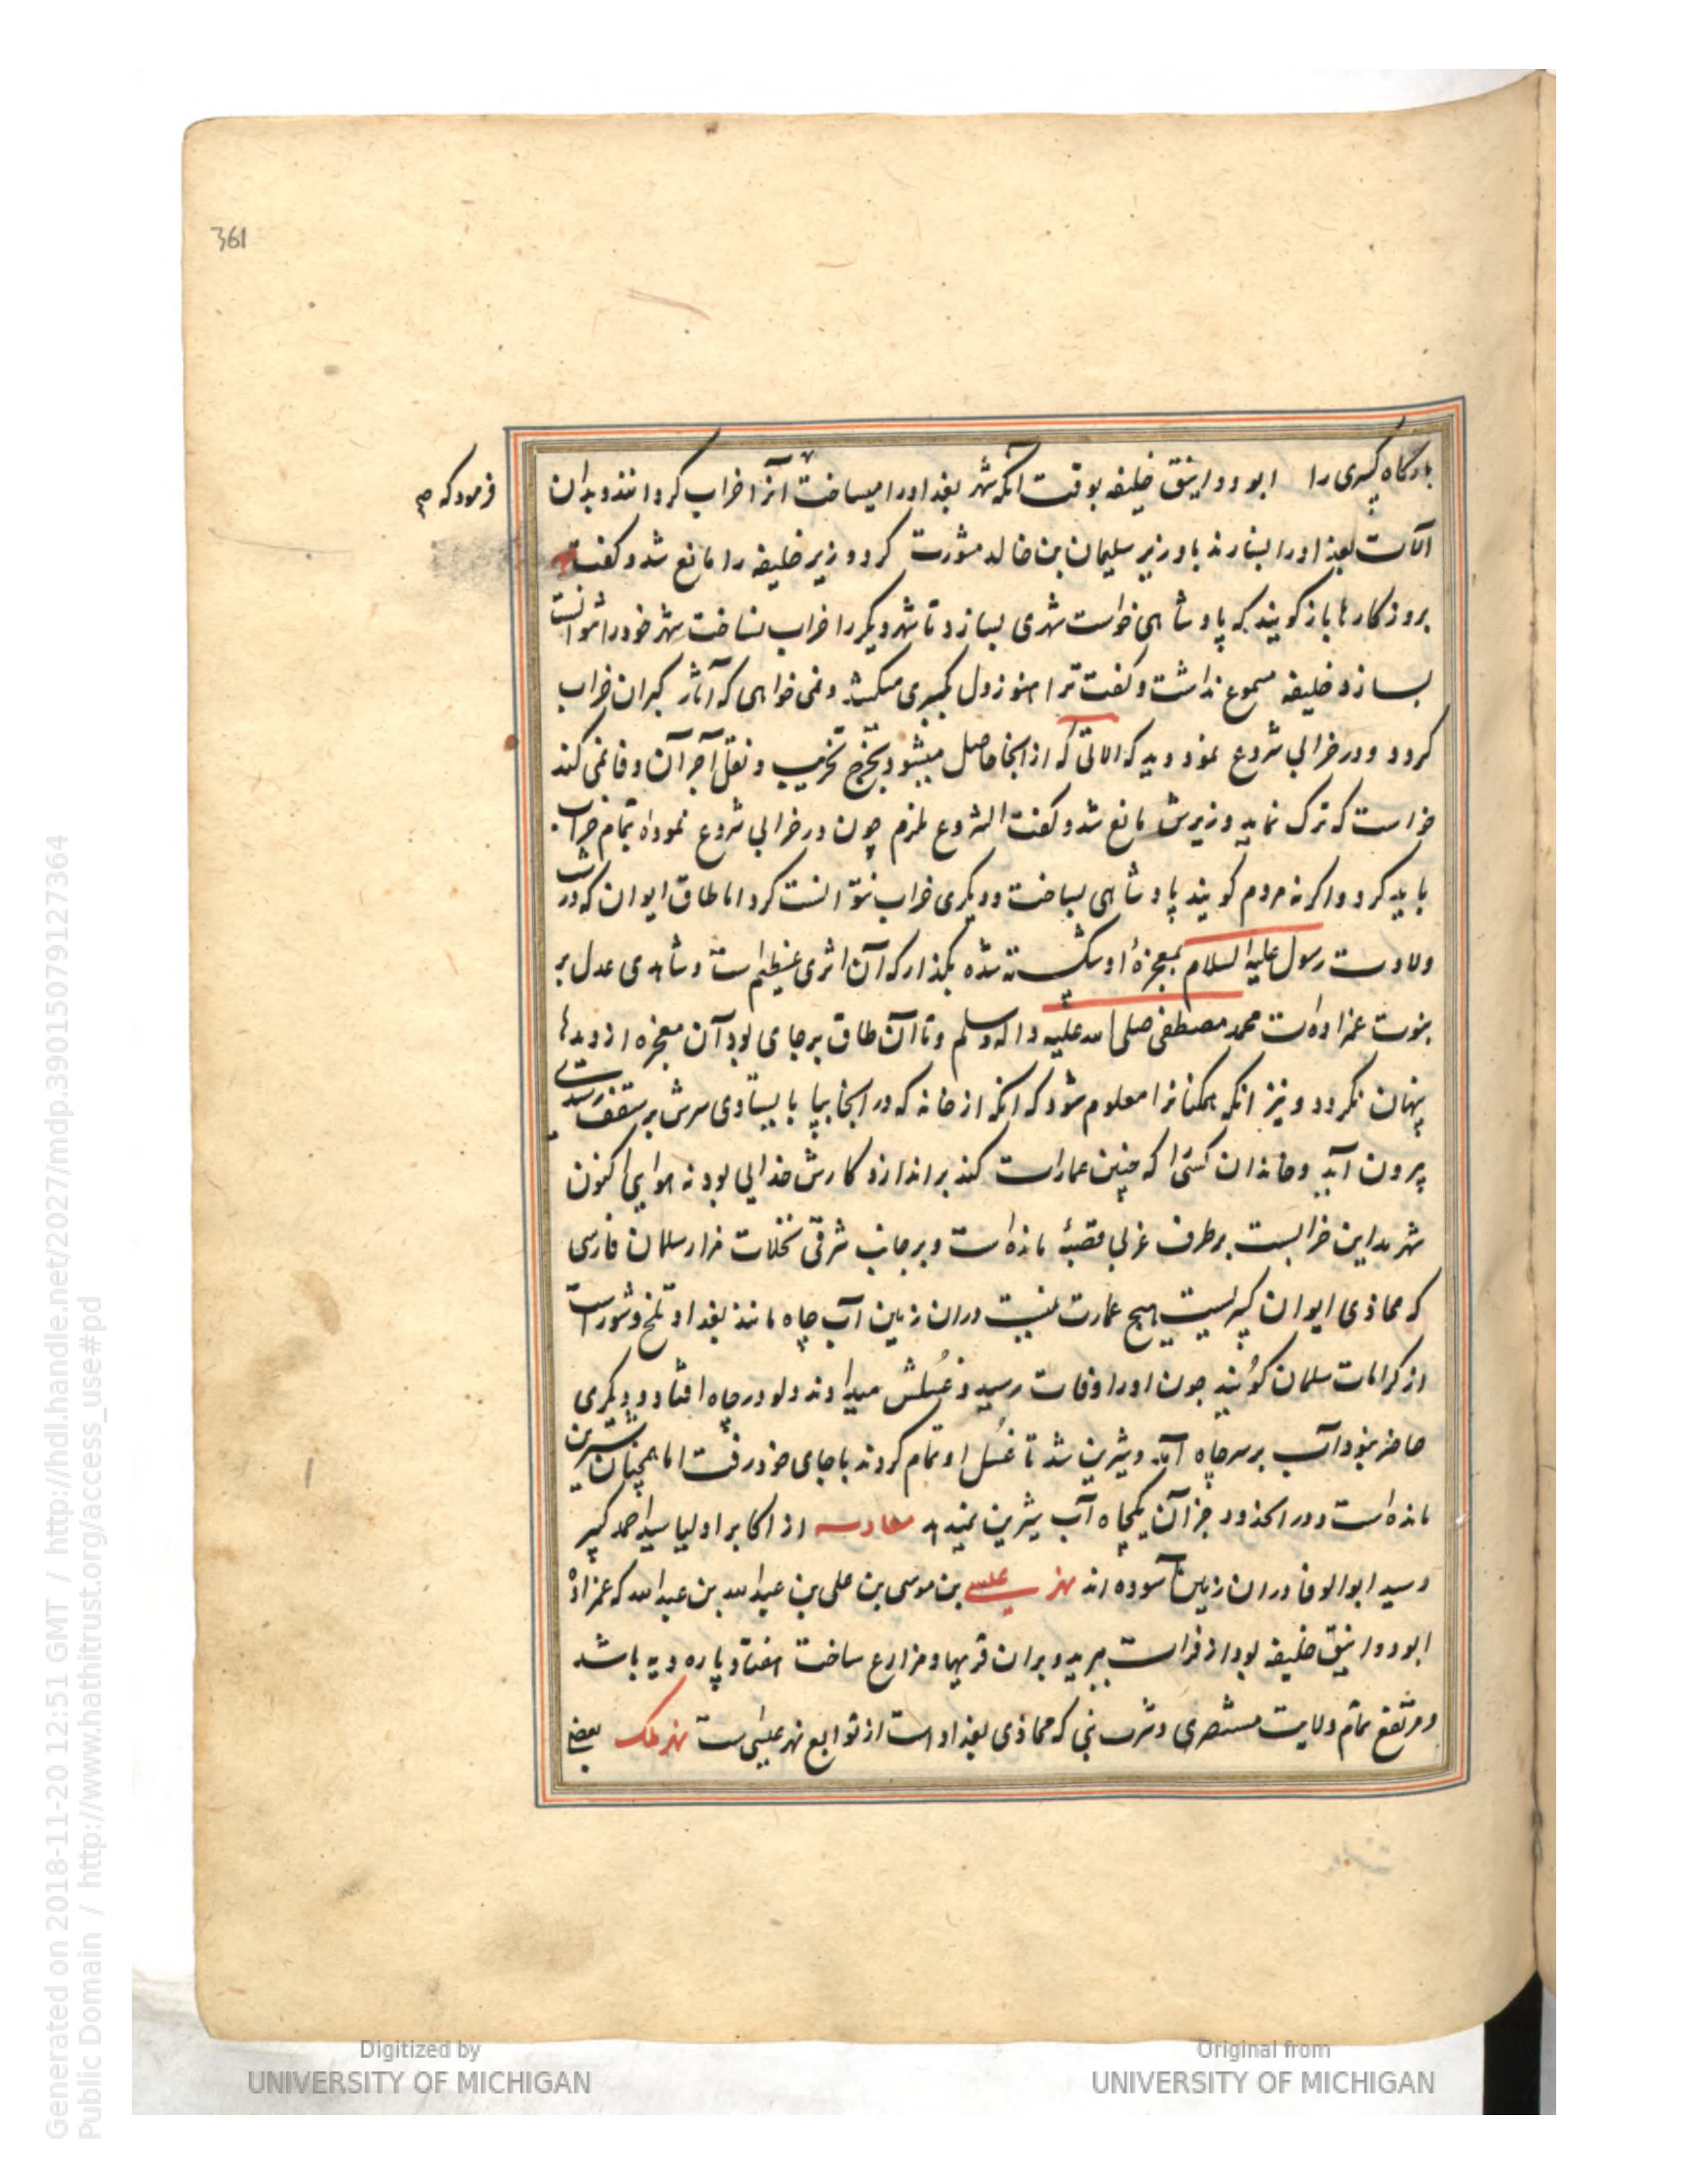 361
بارگاه کسری را ابو دوانیق خلیفه بوقت آنکه شهر بغداد را میساخت آنرا خراب کردانند و بدان
فرمود که صح
آلات بغداد را بسازند با وزیر سلیمان بن خالد مشورت کرد وزیر خلیفه را مانع شد و گفت
بروزکارها باز گویند که پادشاهی خواست شهری بسازد تا شهر دیگر را خراب نساخت شهر خود را نتوانست
بسازد خلیفه مسموع نداشت و گفت ترا هنوز دل کبری میکشد و نمی خواهی که آثار کبران خراب
کردد و در خرابی شروع نمود دید که الاتی که از انجا حاصل میشود بخرج تخریب و نقل آجر آن وفا نمی کند
خواست که ترک نماید وزیرش مانع شد و گفت الشروع ملزم چون در خرابی شروع نموده تمام خراب
باید کرد و اگر نه مردم گویند پادشاهی بساخت و دیگری خراب نتوانست کرد اما طاق ایوان که در شب
ولادت رسول علیه السلام بمعجزهٔ او شکسته شده بگذار که آن اثری عظیم است و شاهدی عدل بر
نبوت عمزاده‌ات محمد مصطفی صلی الله علیه و اله وسلم و تا آن طاق برجای بود آن معجزه از دیدها
پنهان نکردد و نیز انکه همکنانرا معلوم شود که انکه از خانه که در انجا بپا بایستادی سرش بر سقف رسیدی
پرون آید و خاندان کسی را که چنین عمارات کند براندازد کارش خدایی بود نه هوایی اکنون
شهر مداین خرابست بر طرف غربی قصبهٔ مانده است و بر جانب شرقی نخلات مزار سلمان فارسی
که محاذی ایوان کسریست هیچ عمارت نیست دران زمین آب چاه مانند بغداد تلخ و شورست
از کرامات سلمان گویند چون او را وفات رسید و غسلش میدادند دلو در چاه افتاد و دیگری
حاضر نبود آب بر سر چاه آمد و شیرین شد تا غسل او تمام کردند باجای خود رفت اما همچنان شیرین
مانده است و در احدود جز آن یکچاه آب شیرین نمیدهد از اکابر اولیا سید احمد کبیر
و سید ابوالوفا دران زمین آسوده اند نهر عیسی بن موسی بن علی بن عبدالله بن عبدالله که عمزاده
ابو دوانیق خلیفه بود از فرات ببرید و بران قریها و مزارع ساخت هفتاد پاره دیه باشد
و مرتفع تمام ولایت مستنصری و شرب نبی که محاذی بغداد است از توابع نهر عیسی است نهر ملک بعضی
Digitized by
UNIVERSITY OF MICHIGAN
Original from
UNIVERSITY OF MICHIGAN
Generated on 2018-11-20 12:51 GMT / http://hdl.handle.net/2027/mdp.39015079127364
Public Domain / http://www.hathitrust.org/access_use#pd